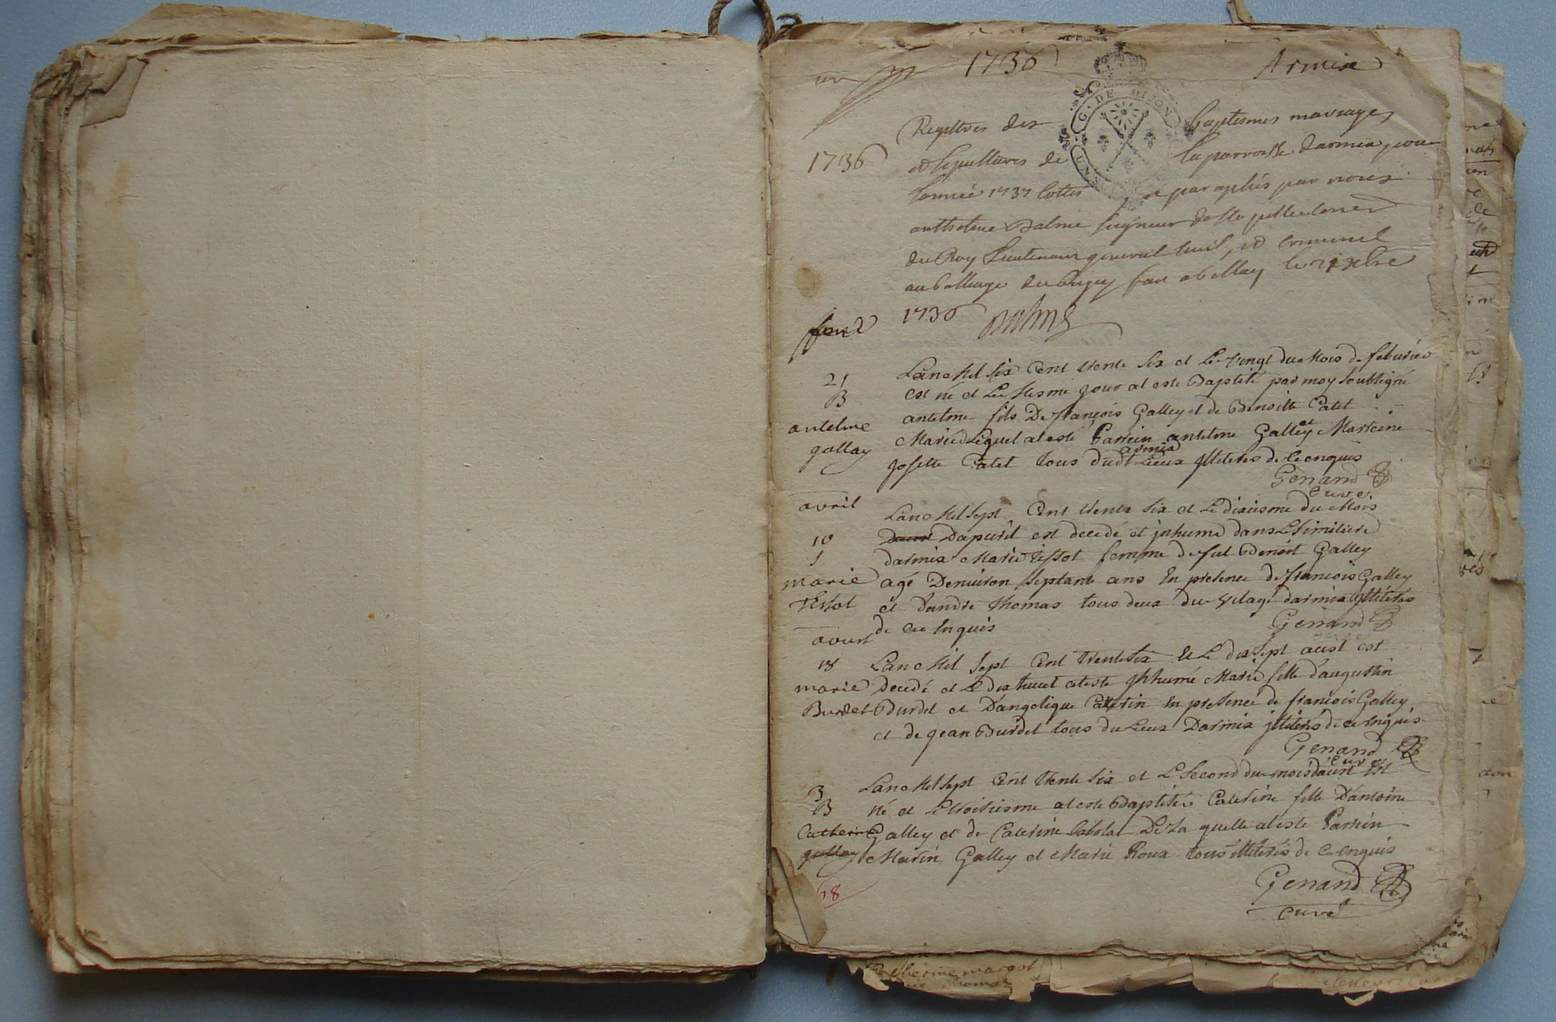 1736 Armix
G. DE DIJON
1736
Registres des baptesmes mariages
et sepultures de la parroisse darmix pour
lannée 1737 cottés et paraphés par nous
antholme Balme seigneur de
du Roy Lieutenant general civil et criminel
au balliage du bugey fait a bellay le
1736
fevr
21
B
antelme
gallay
Lan Mil six Cent trente six et Le vingt du Mois de feburier
est né et Le Mesme jour at esté Baptisé par moy soubsigné
antelme fils De françois Galley et de Benoitte Catet
Mariés Lequel at esté Parrein antelme Galley et Marreine
josette Catet tous dudt armix Lieux illiterés de ce enquis
Genand
Curé
avril
10
S
marie
Tissot
Lan Mil sept Cent trente six et Le dixiesme du Mois
Dapuril est decedé et jnhumé dans Le Simitiere
darmix Marie Tissot femme de fut Benoit Galley
agé Denuiron septante ans En presence de françois Galley
et D'andre thomas tous deux du vilage darmix illiterés
de ce Enquis
Genand
aoust
18
marie
Burdet
Lan Mil sept Cent Trente six et Le dix sept aust est
decedé et Le dix huict at esté jnhumé Marie fille d'augustin
Burdet et D'angelique Caterin En presence de françois Galley
et de jean Burdet tous du Lieux Darmix jlliterés de ce Enquis
Genand
Curé
3
B
Catherine
gallay
Lan Mil sept Cent trente six et Le Second du mois daust Est
né et Le troisiesme at esté Baptiséé Caterine fille D'antoine
Galley et de Caterine De La quelle at esté Parrein
Martin Galley et Marie Roux tous illiterés de ce enquis
Genand
Curé
18